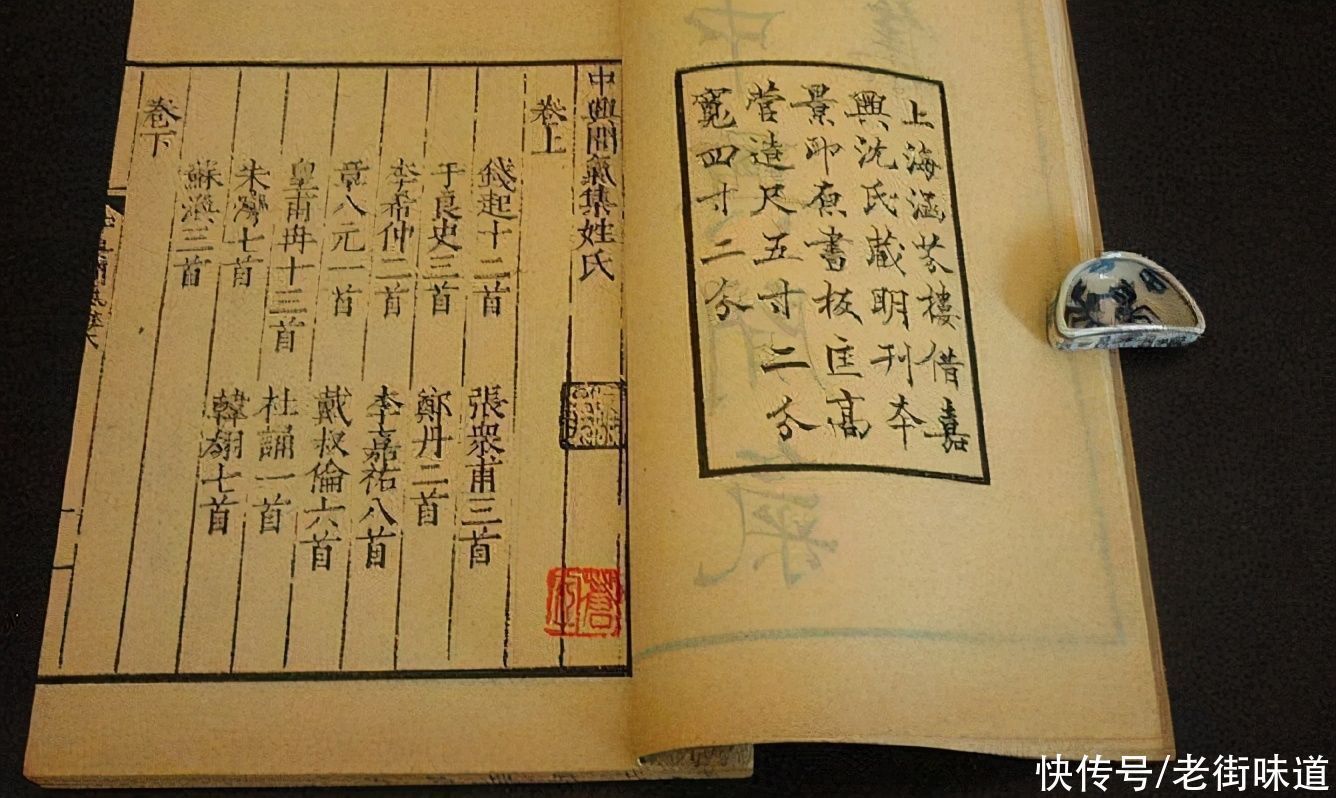 上海涵芬樓借嘉
興沈氏藏明刊本
景印原書板匡高
營造尺五寸二分
寬四寸二分
中興間氣集姓氏
卷上
錢起十二首 張衆甫三首
于良史三首 鄭丹二首
李希仲二首 李嘉祐八首
章八元一首 戴叔倫六首
皇甫冉十三首 杜誦一首
朱灣七首 韓翃七首
蘇渙三首
卷下
快传号/老街味道